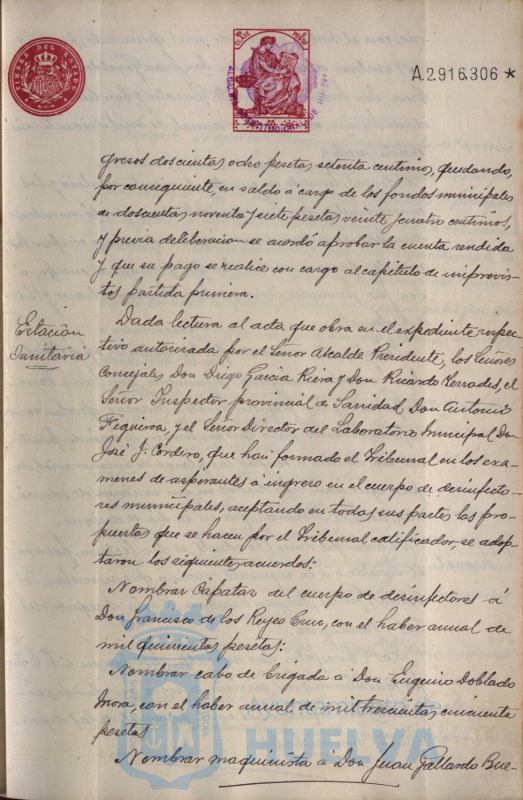 TIMBRE DEL ESTADO
A.2916.306 *
gresos doscientas ocho pesetas setenta centimos, quedando,
por consiguiente, un saldo á cargo de los fondos municipales
de doscientas noventa y siete pesetas veinte y cuatro centimos,
y previa deliberacion se acordó aprobar la cuenta rendida
y que su pago se realice con cargo al capitulo de imprevis-
tos partida primera.
Estación
Sanitaria
Dada lectura al acta que obra en el expediente respec-
tivo autorizada por el Señor Alcalde Presidente, los Señores
Concejales Don Diego Garcia Riera y Don Ricardo Terrades, el
Señor Inspector provincial de Sanidad Don Antonio
Figueroa, y el Señor Director del Laboratorio Municipal Don
José J. Cordero, que han formado el Tribunal en los exa-
menes de aspirantes á ingreso en el cuerpo de desinfecto-
res municipales, aceptando en todas sus partes las pro-
puestas que se hacen por el Tribunal calificador, se adop-
taron los siguientes acuerdos:
Nombrar Capataz del cuerpo de desinfectores á
Don Francisco de los Reyes Cruz, con el haber anual de
mil quinientas pesetas:
Nombrar cabo de brigada á Don Eugenio Doblado
Mora, con el haber anual de mil trescientas cincuenta
pesetas
Nombrar maquinista á Don Juan Gallardo Bue-
Ayuntamiento de
HUELVA